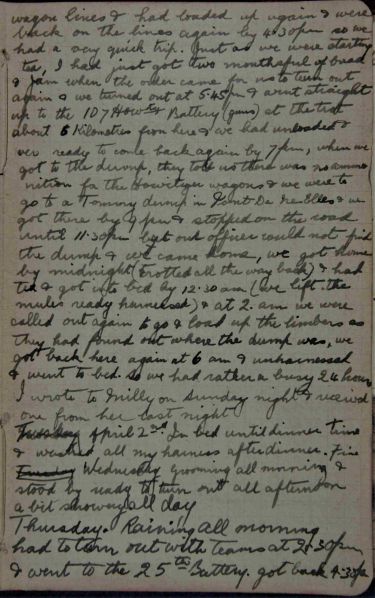 wagon lines & had loaded up again & were
back on the lines again by 4.30pm so we
had a very quick trip. Just as we were starting
tea, I had just got two mouthsful of bread
& jam when the order came for us to turn out
again & we turned out at 5.45pm & went straight
up to the 107 Battery (guns) at the trot
about 6 Kilometres from here & we had unloaded &
ready to come back again by 7pm, when we
got to the dump, they told us there was no ammu
nition for the Howitzer wagons & we were to
go to a Tommy dump in & we
got there by 9pm & stopped on the road
until 11.30pm but our officer could not find
the dump & we came home, we got home
by midnight (trotted all the way back) & had
tea & got into bed by 12.30 am (we left the
mules ready harnessed) & at 2.am we were
called out again to go & load up the limbers as
they had found out where the dump was, we
got back here again at 6 am & unharnessed
& went to bed. so we had rather a busy 24 hours
I wrote to Milly on Sunday night & received
one from her last night
Tuesday April 2nd. In bed until dinner time
& washed all my harness after dinner. Fine
Tuesday Wednesday grooming all morning &
stood by ready to turn out all afternoon
a bit showery all day
Thursday. Raining all morning
had to turn out with teams at 2.30pm
& went to the 25th Battery. got back 4.30pm